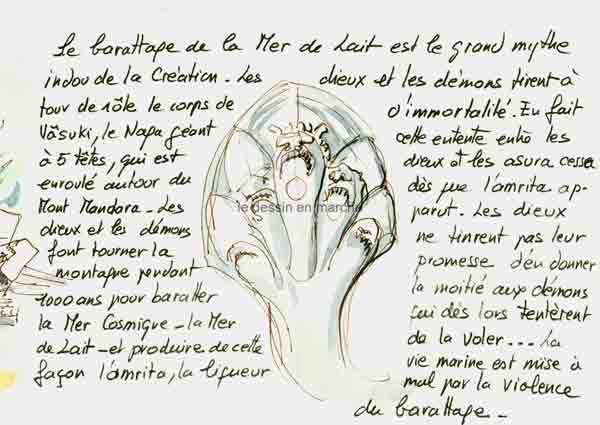 Le barattage de la Mer de Lait est le grand mythe
indou de la Création. Les
tour de rôle le corps de
Vâsuki, le Naga géant
à 5 têtes, qui est
enroulé autour du
Mont Mandara. Les
dieux et les démons
font tourner la
montagne pendant
1000 ans pour baratter
la Mer Cosmique - la Mer
de Lait - et produire de cette
façon l'amrita, la liqueur
dieux et les démons tirent à
d'immortalité. En fait
cette entente entre les
dieux et les asura cessa
dès que l'amrita ap-
parut. Les dieux
ne tinrent pas leur
promesse d'en donner
la moitié aux démons
qui dès lors tentèrent
de la voler... La
vie marine est mise à
mal par la violence
du barattage -
le dessin en marche